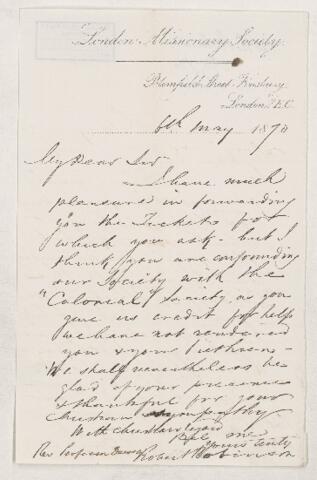 London Missionary Society.
Blomfield Street Finsbury
London E.C.
6th May 1870
My Dear Sir
I have much
pleasure in forwarding
you the Tickets for
which you ask - but I
think you are confounding
our Society with the
"Colonial" Society, as you
give us credit for help
we have not rendered
you & your brethren -
We shall nevertheless be
glad of your presence
& thankful for your
Christian sympathy
With Christian regard
me
Yours truly
Robert Robinson
Rev Professor